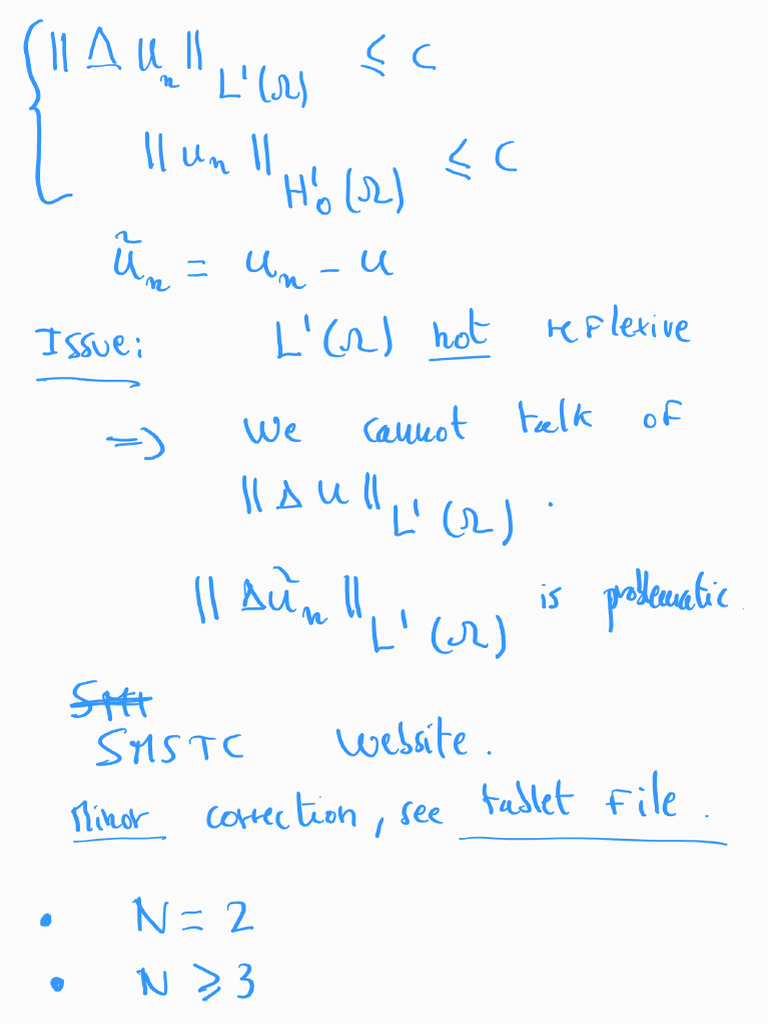 ‖Δu_n‖_{L¹(Ω)} ≤ C
‖u_n‖_{H¹₀(Ω)} ≤ C
ũ_n = u_n - u
Issue: L¹(Ω) not reflexive
⇒ We cannot talk of
‖Δu‖_{L¹(Ω)} .
‖Δũ_n‖_{L¹(Ω)} is problematic.
SMSTC website.
Minor correction, see tablet file.
• N = 2
• N ⩾ 3